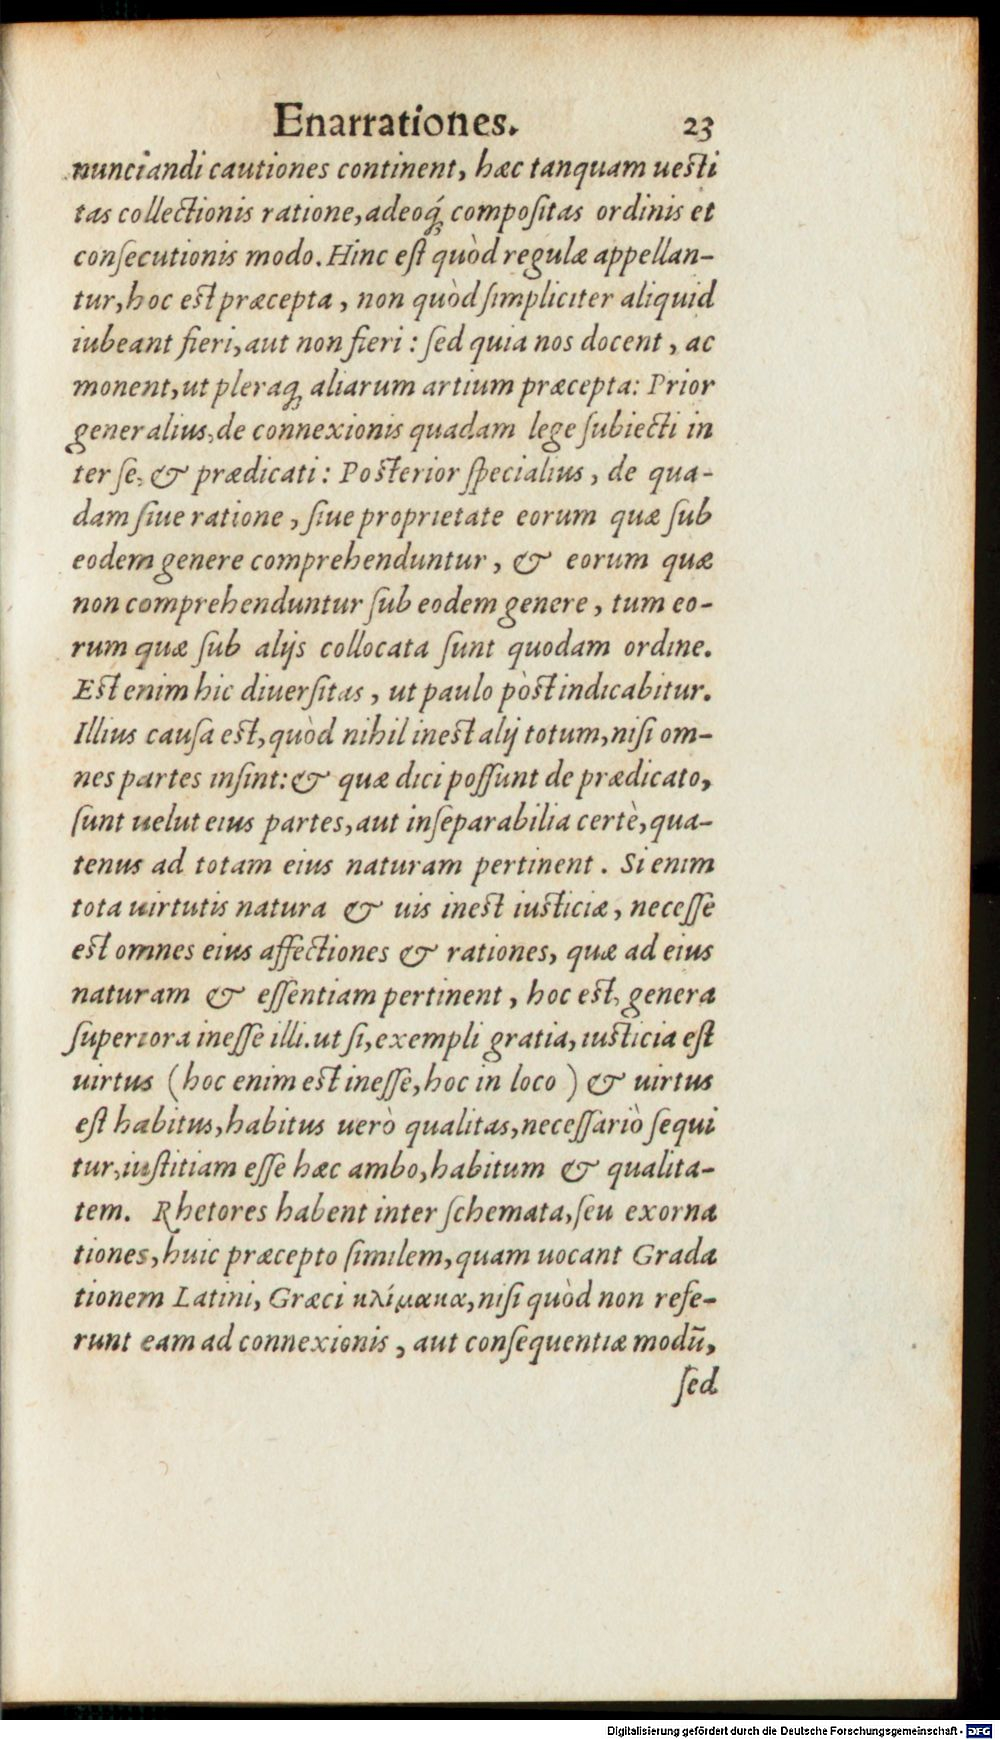 Enarrationes. 23
nunciandi cautiones continent, hæc tanquam uesti
tas collectionis ratione, adeoq́ʒ compoſitas ordinis et
conſecutionis modo. Hinc eſt quòd regulæ appellan-
tur, hoc est præcepta, non quòd ſimpliciter aliquid
iubeant fieri, aut non fieri : ſed quia nos docent, ac
monent, ut pleraqʒ aliarum artium præcepta: Prior
generalius, de connexionis quadam lege ſubiecti in
ter ſe, & prædicati : Posterior ſpecialius, de qua-
dam ſiue ratione, ſiue proprietate eorum quæ ſub
eodem genere comprehenduntur, & eorum quæ
non comprehenduntur ſub eodem genere, tum eo-
rum quæ ſub alijs collocata ſunt quodam ordine.
Est enim hic diuerſitas, ut paulo pòst indicabitur.
Illius cauſa est, quòd nihil inest alij totum, niſi om-
nes partes inſint: & quæ dici poſſunt de prædicato,
ſunt uelut eius partes, aut inſeparabilia certè, qua-
tenus ad totam eius naturam pertinent. Si enim
tota uirtutis natura & uis inest iusticiæ, neceſſe
est omnes eius affectiones & rationes, quæ ad eius
naturam & eſſentiam pertinent, hoc est, genera
ſuperiora ineſſe illi. ut ſi, exempli gratia, iusticia eſt
uirtus (hoc enim est ineſſe, hoc in loco) & uirtus
eſt habitus, habitus uerò qualitas, neceſſariò ſequi
tur, iuſtitiam eſſe hæc ambo, habitum & qualita-
tem. Rhetores habent inter ſchemata, ſeu exorna
tiones, huic præcepto ſimilem, quam uocant Grada
tionem Latini, Græci κλίμακα, niſi quòd non refe-
runt eam ad connexionis, aut conſequentiæ modū,
ſed
Digitalisierung gefördert durch die Deutsche Forschungsgemeinschaft - DFG